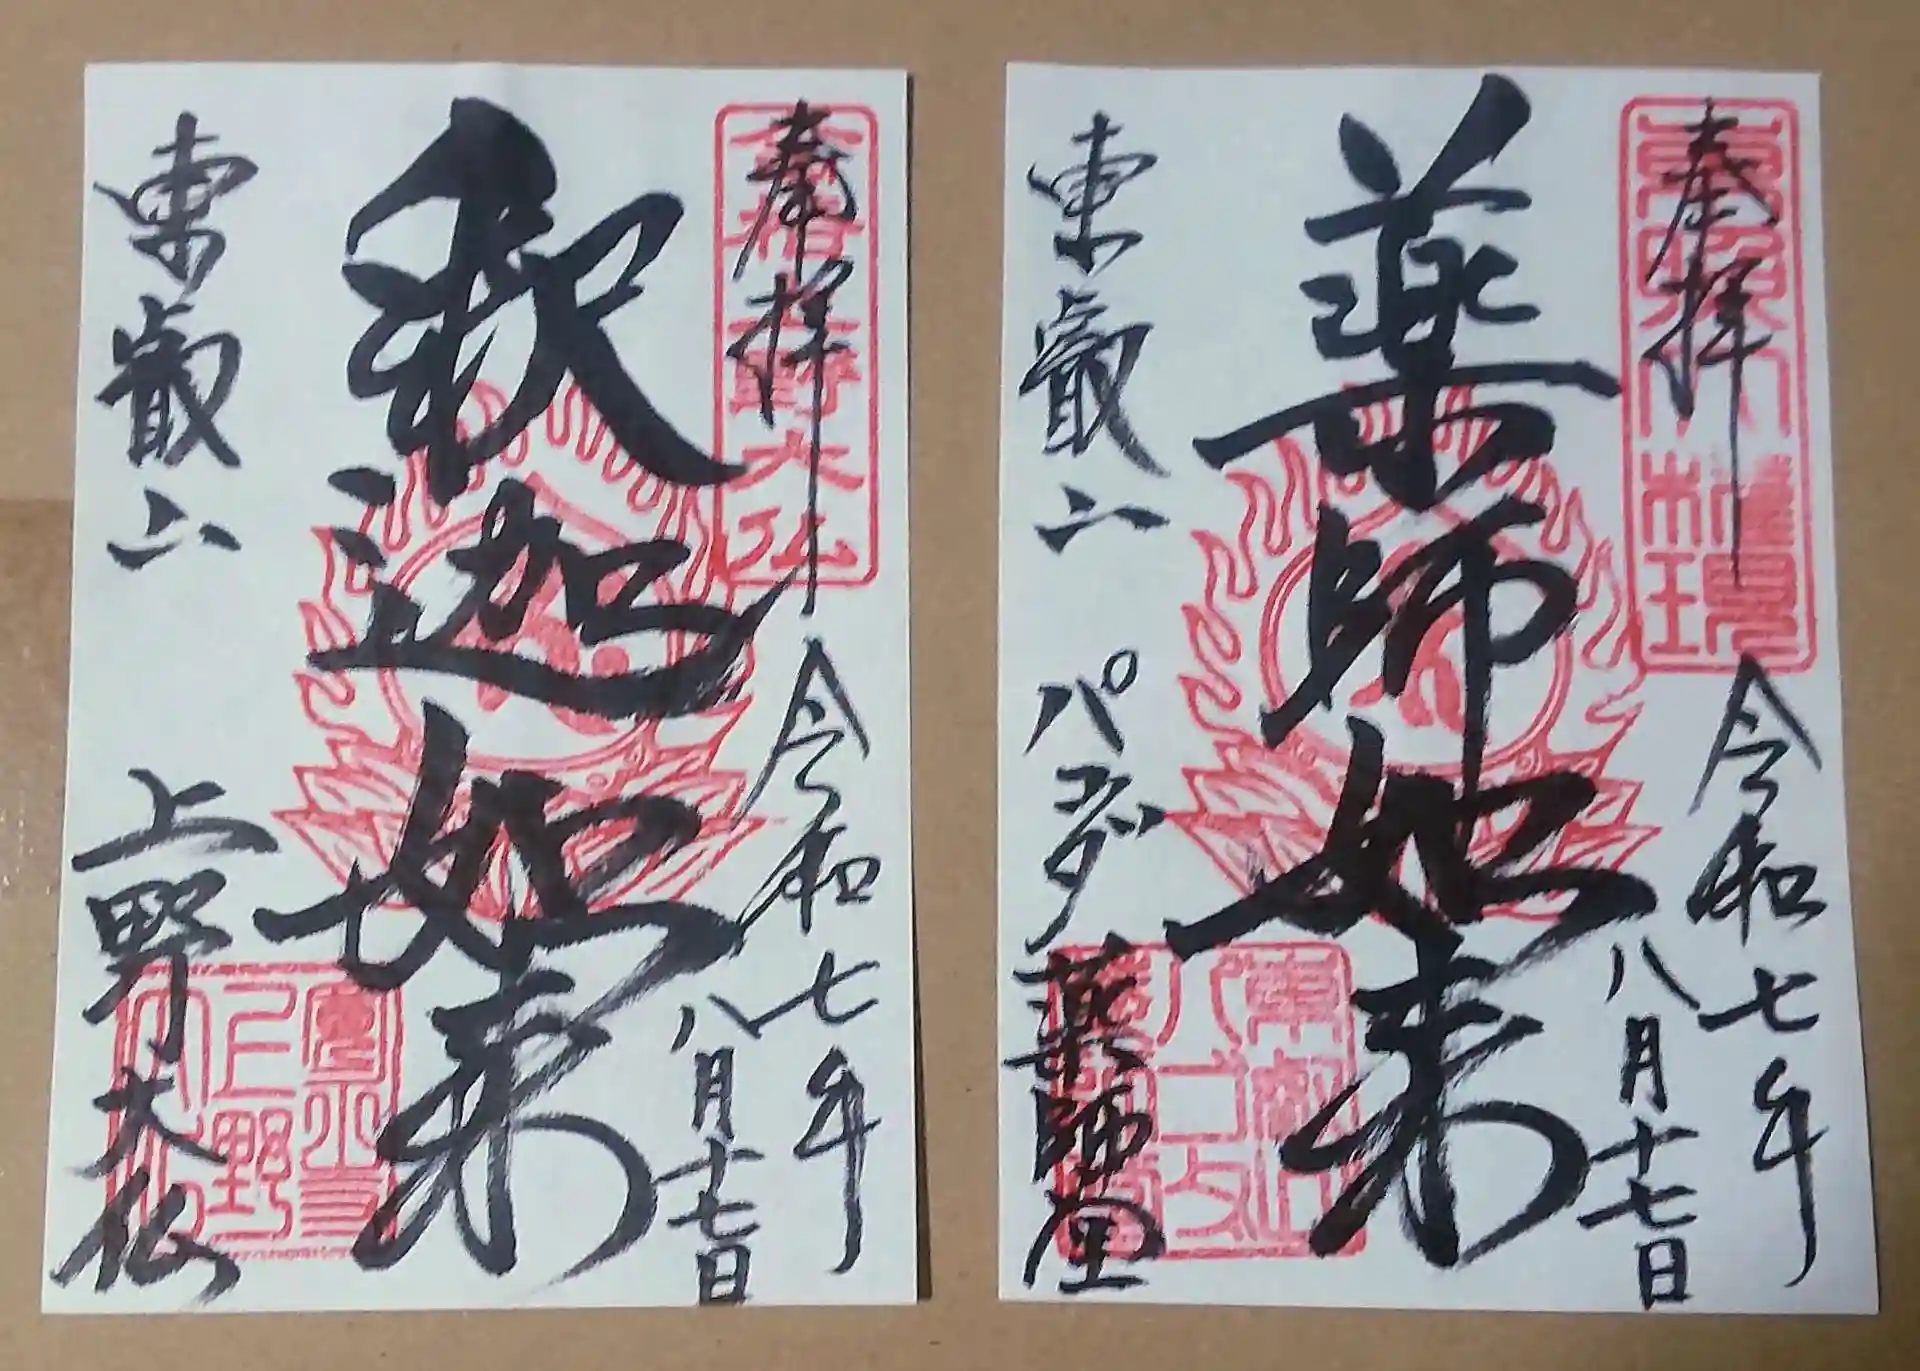 奉拝
令和七年
八月十七日
釈迦如来
東叡山
上野大仏
奉拝
令和七年
八月十七日
薬師如来
東叡山
パゴダ
薬師堂